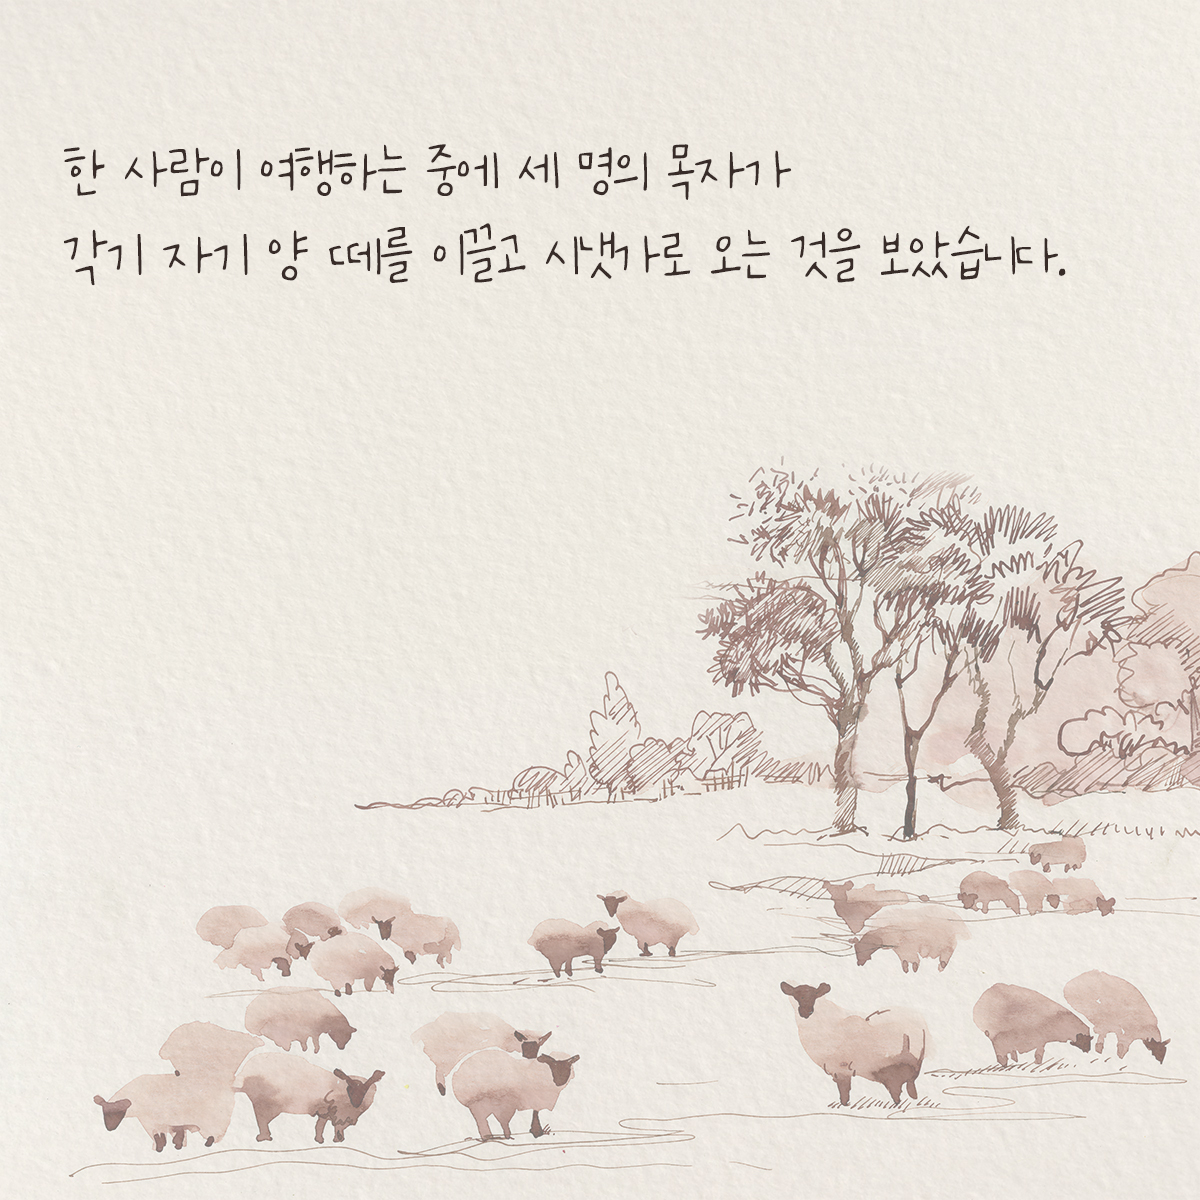 한 사람이 여행하는 중에 세 명의 목자가
각기 자기 양 떼를 이끌고 시냇가로 오는 것을 보았습니다.